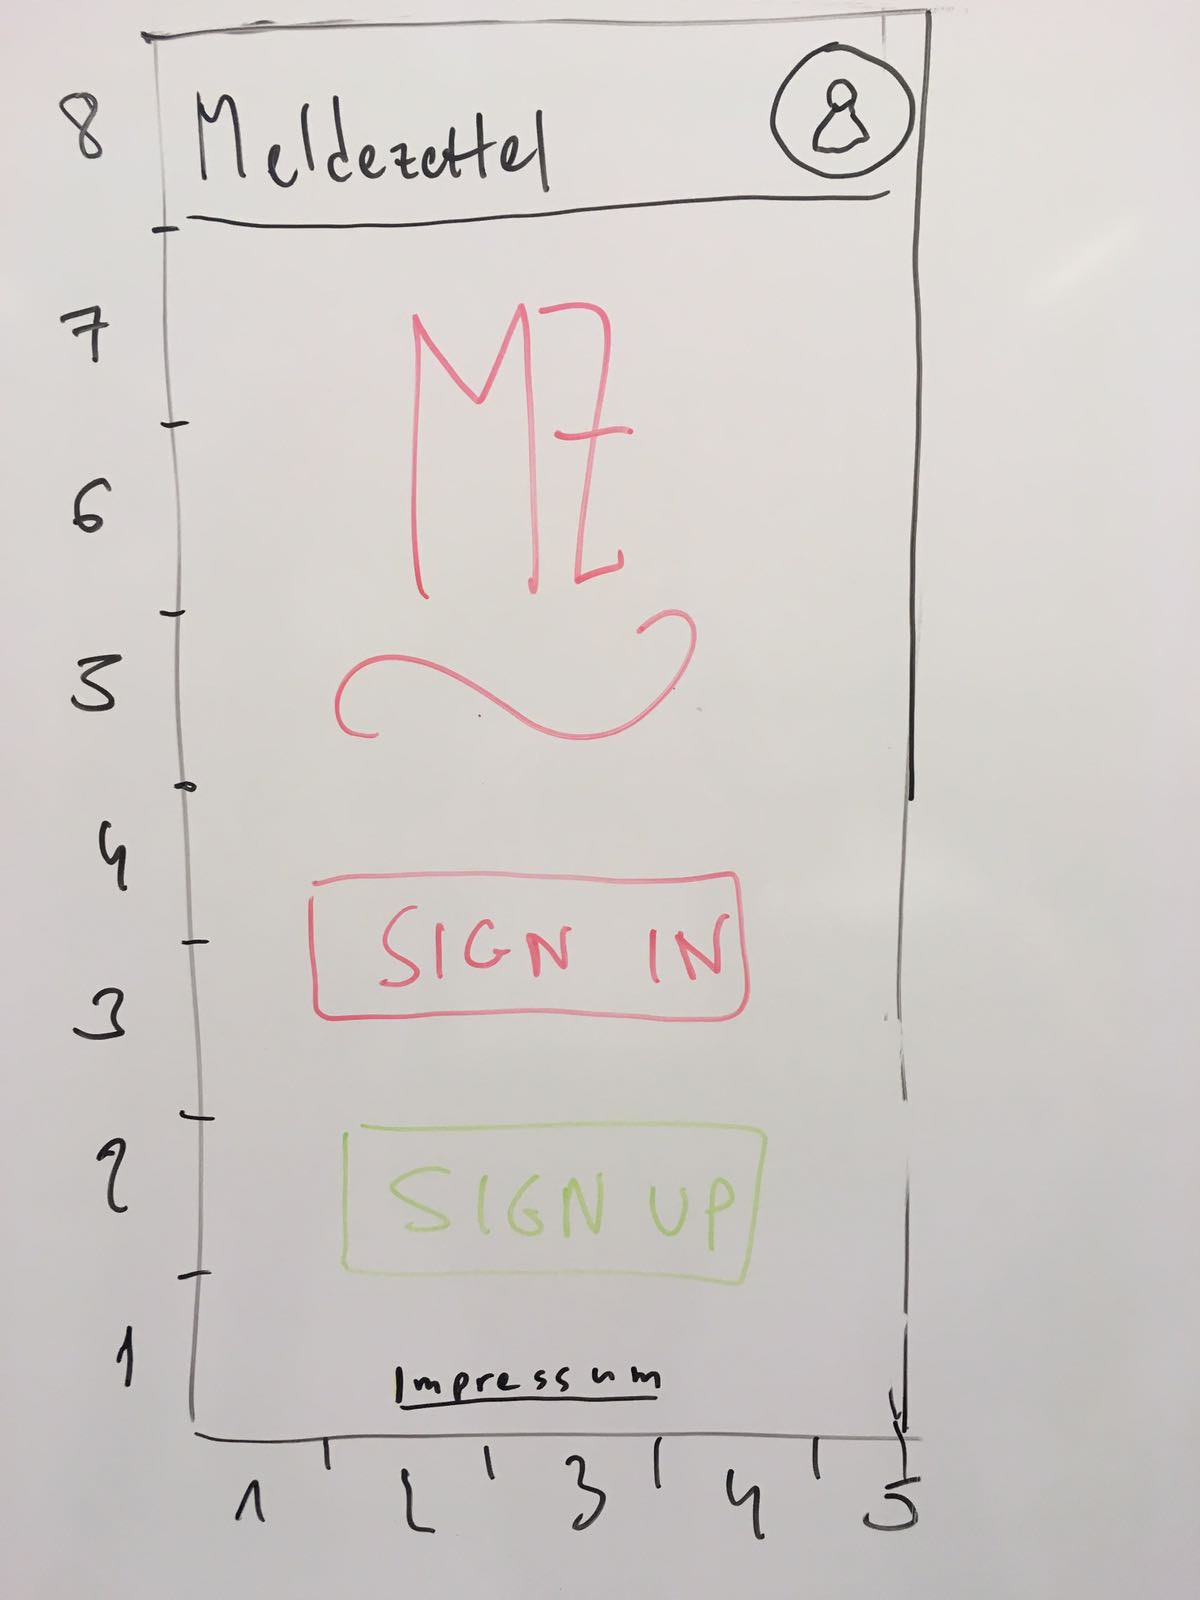 8
Meldezettel
7
MZ
6
5
4
SIGN IN
3
SIGN UP
2
1
Impressum
1 2 3 4 5